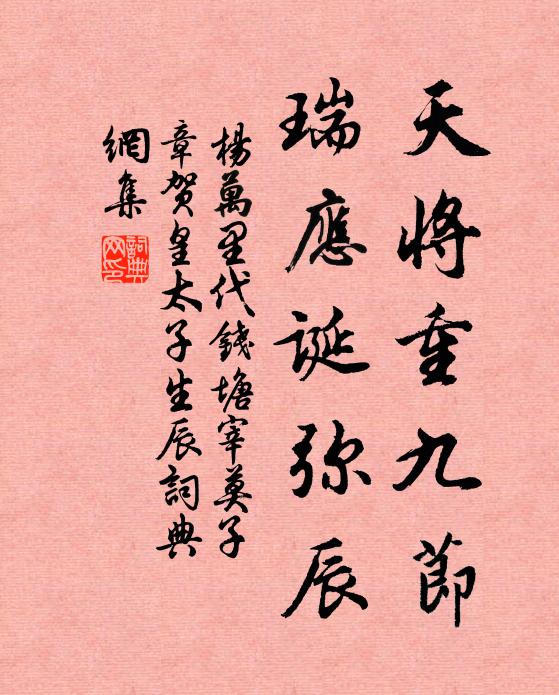 天將重九節
瑞應誕弥辰
楊萬里代錢塘宰莫子
章賀皇太子生辰詞典
網集
詞典網印